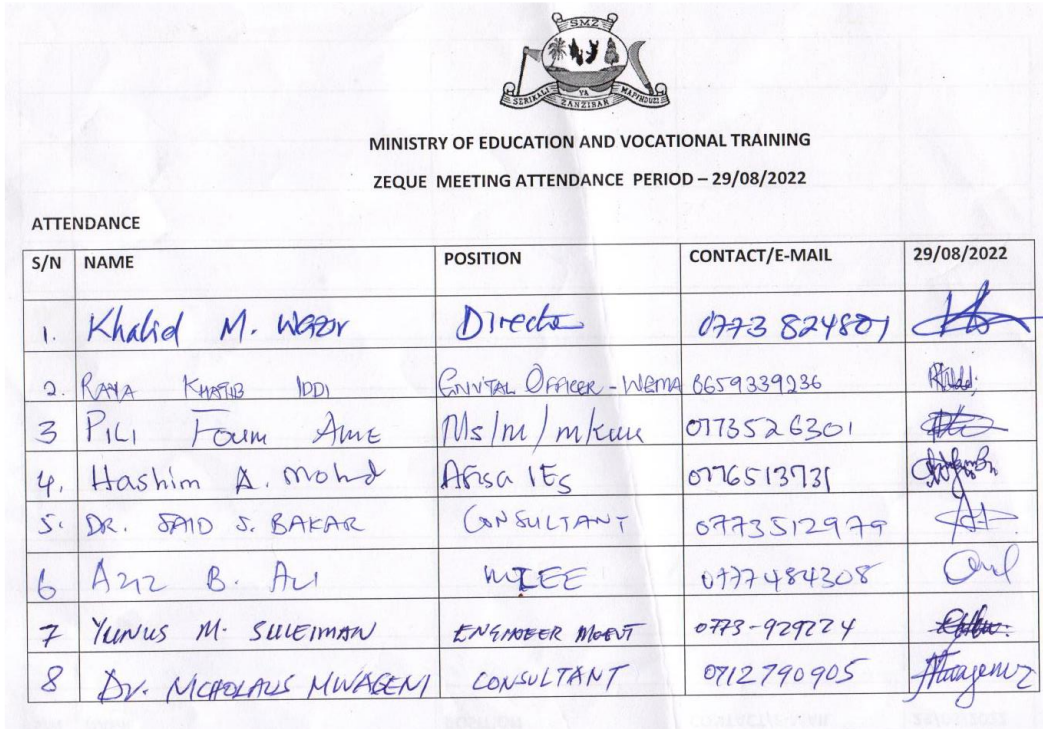 SMZ
SERIKALI YA MAPINDUZI
ZANZIBAR
MINISTRY OF EDUCATION AND VOCATIONAL TRAINING
ZEQUE MEETING ATTENDANCE PERIOD – 29/08/2022
ATTENDANCE
S/N NAME POSITION CONTACT/E-MAIL 29/08/2022
1. Khalid M. Director 0773 824801
2. RAYA KHATIB IDDI OFFICER - WEMA 0659339236
3 PILI FOUM AME Ms/m/mkuu 0773526301
4. Hashim A. Mohd Afisa IEs 0776513731
5. DR. SAID S. BAKAR CONSULTANT 0773512979
6 AZIZ B. ALI 0777484308
7 YUNUS M. SULEIMAN ENGINEER MOEVT 0773-929224
8 Dr. NICHOLAUS MWAGENI CONSULTANT 0712790905